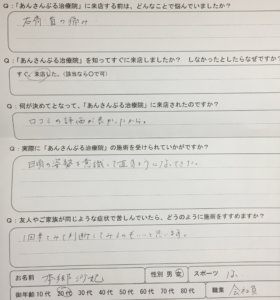 Q:「あんさんぶる治療院」に来店する前は、どんなことで悩んでいましたか?
右肩 首の痛み
Q:「あんさんぶる治療院」を知ってすぐに来店しましたか? しなかったとしたらなぜですか?
すぐ来店した。(該当なら○で可)
Q:何が決めてとなって、「あんさんぶる治療院」に来店されたのですか?
口コミの評価が良かったから。
Q:実際に「あんさんぶる治療院」の施術を受けられていかがですか?
日頃の姿勢を意識して直すようになってきた。
Q:友人やご家族が同じような症状で苦しんでいたら、どのように施術をすすめますか?
1回来てみて判断してみるのもいいと思います。
お名前 性別 男 女 スポーツ
御年齢 10代 20代 30代 40代 50代 60代 70代 80代 職業 会社員